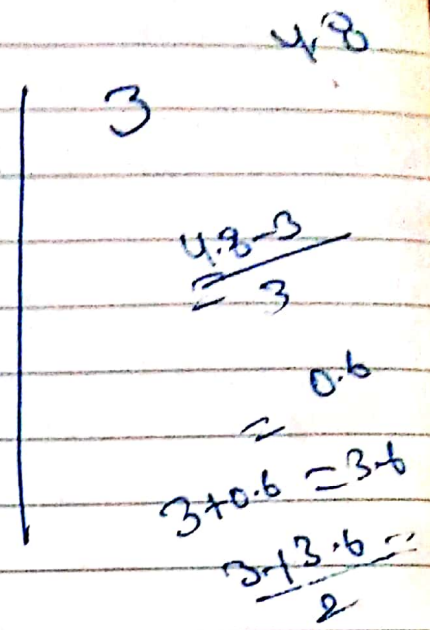 4.8
3
4.8-3
= 3
0.6
=
3+0.6 = 3.6
3+3.6 =
2